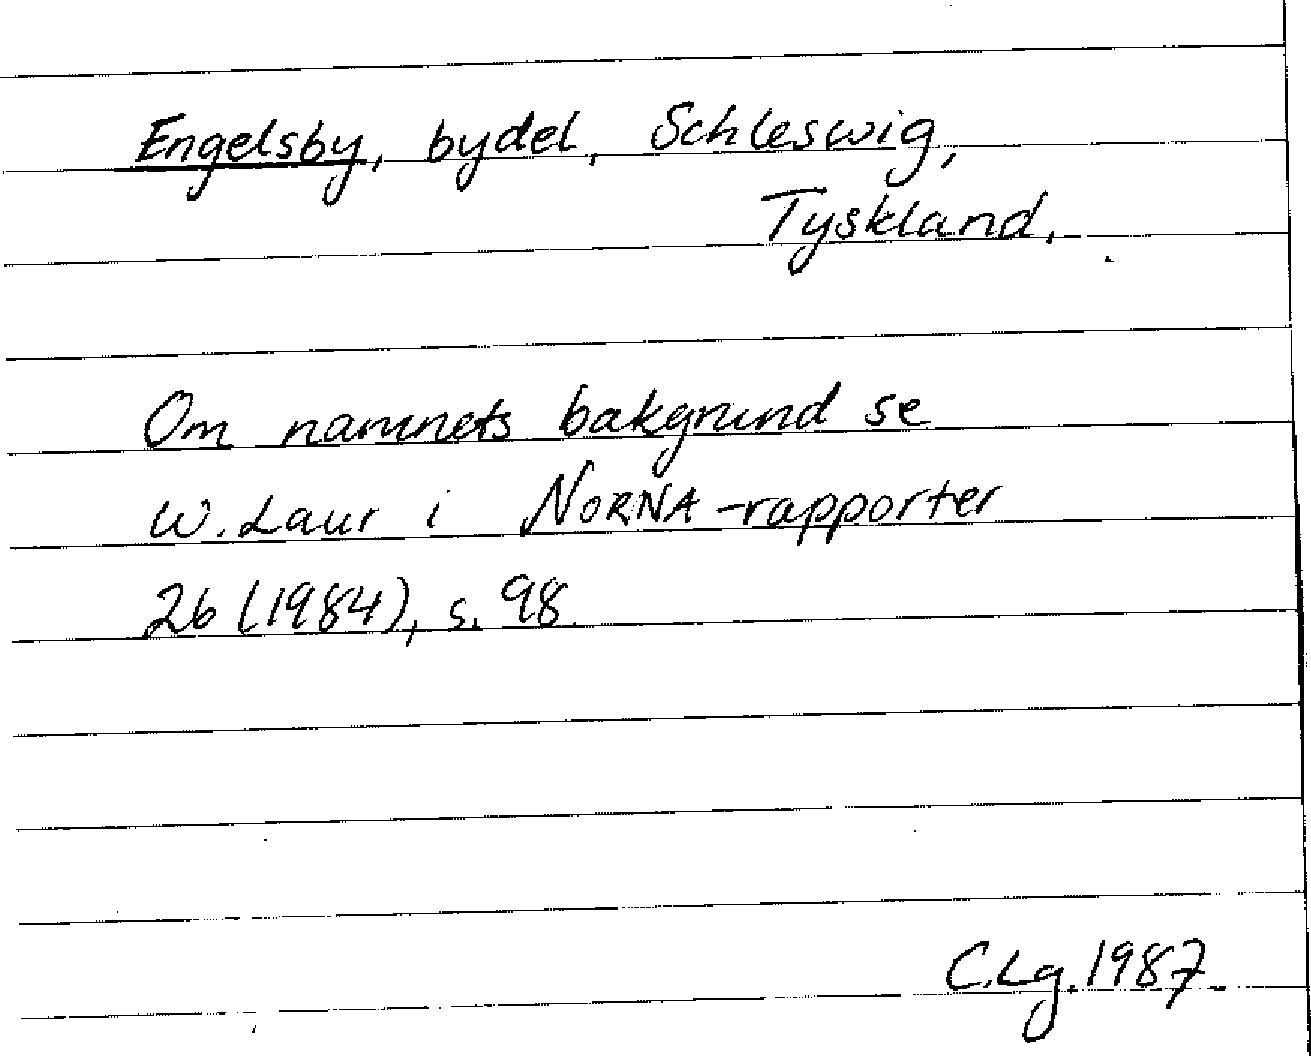 Engelsby, bydel, Schleswig,
Tyskland.
Om namnets bakgrund se
W. Laur i NORNA-rapporter
26 (1984), s. 98.
C.Lg. 1987.